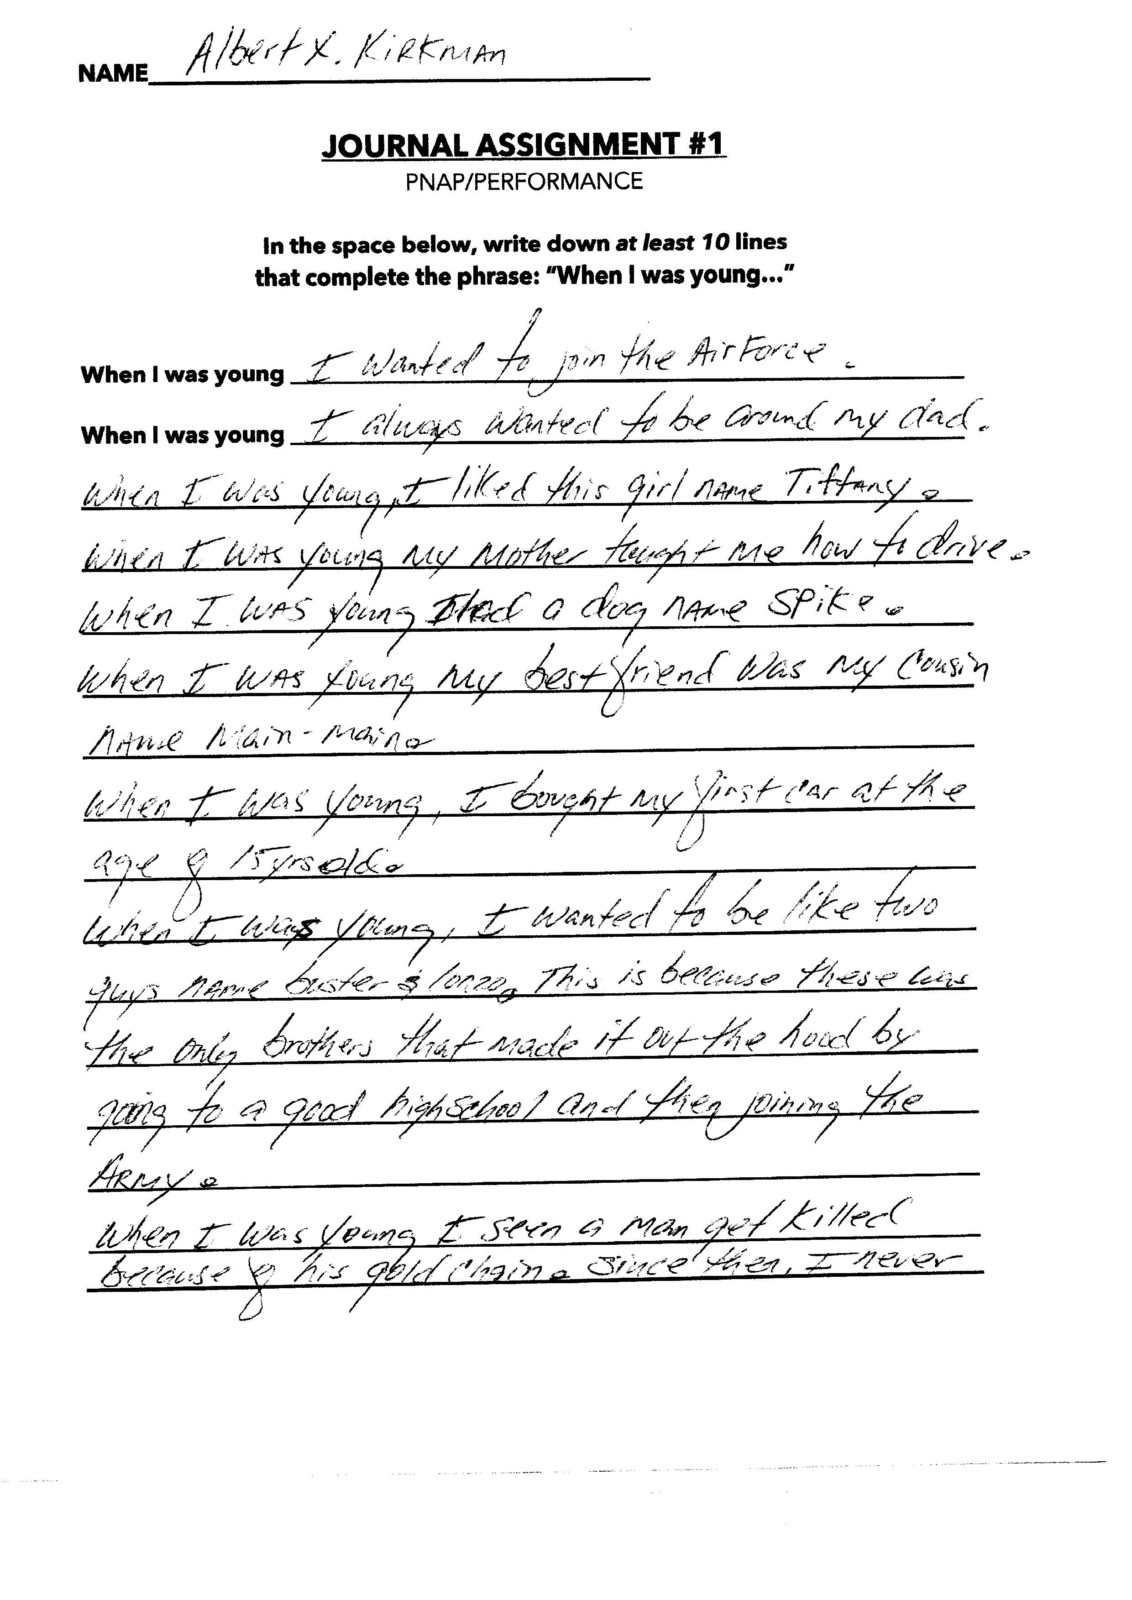 NAME Albert X. Kirkman
JOURNAL ASSIGNMENT #1
PNAP/PERFORMANCE
In the space below, write down at least 10 lines
that complete the phrase: "When I was young..."
When I was young I wanted to join the AirForce.
When I was young I always wanted to be around my dad.
When I was young, I liked this girl name Tiffany.
When I was young my mother taught me how to drive.
When I was young I had a dog name Spike.
When I was young my best friend was my cousin
name Main-Main.
When I was young, I bought my first car at the
age of 15yrs old.
When I was young, I wanted to be like two
guys name buster & lonzo. This is because these was
the only brothers that made it out the hood by
going to a good highschool and then joining the
Army.
When I was young I seen a man get killed
because of his gold chain. Since then, I never